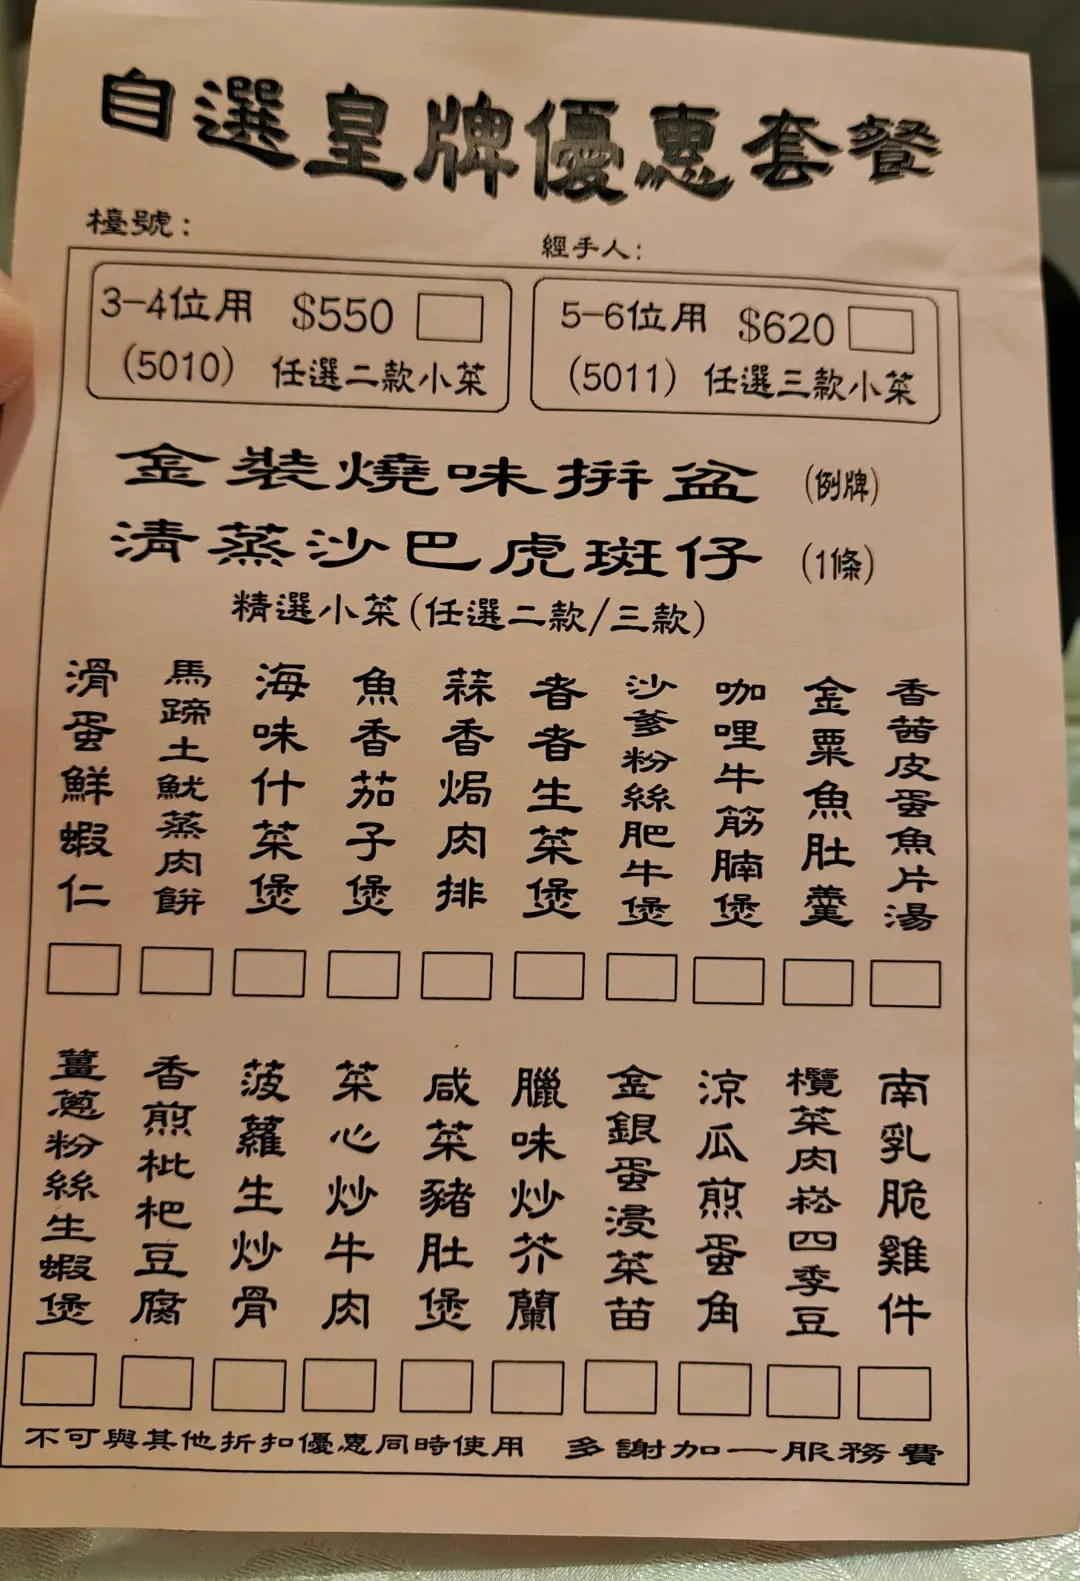 自選皇牌優惠套餐
檯號：
經手人：
3-4位用 $550
(5010) 任選二款小菜
5-6位用 $620
(5011) 任選三款小菜
金裝燒味拼盆 (例牌)
清蒸沙巴虎斑仔 (1條)
精選小菜(任選二款/三款)
香茜皮蛋魚片湯
金粟魚肚羹
咖哩牛筋腩煲
沙爹粉絲肥牛煲
者者生菜煲
蒜香焗肉排
魚香茄子煲
海味什菜煲
馬蹄土魷蒸肉餅
滑蛋鮮蝦仁
南乳脆雞件
欖菜肉崧四季豆
涼瓜煎蛋角
金銀蛋浸菜苗
臘味炒芥蘭
咸菜豬肚煲
菜心炒牛肉
菠蘿生炒骨
香煎枇杷豆腐
薑蔥粉絲生蝦煲
不可與其他折扣優惠同時使用 多謝加一服務費